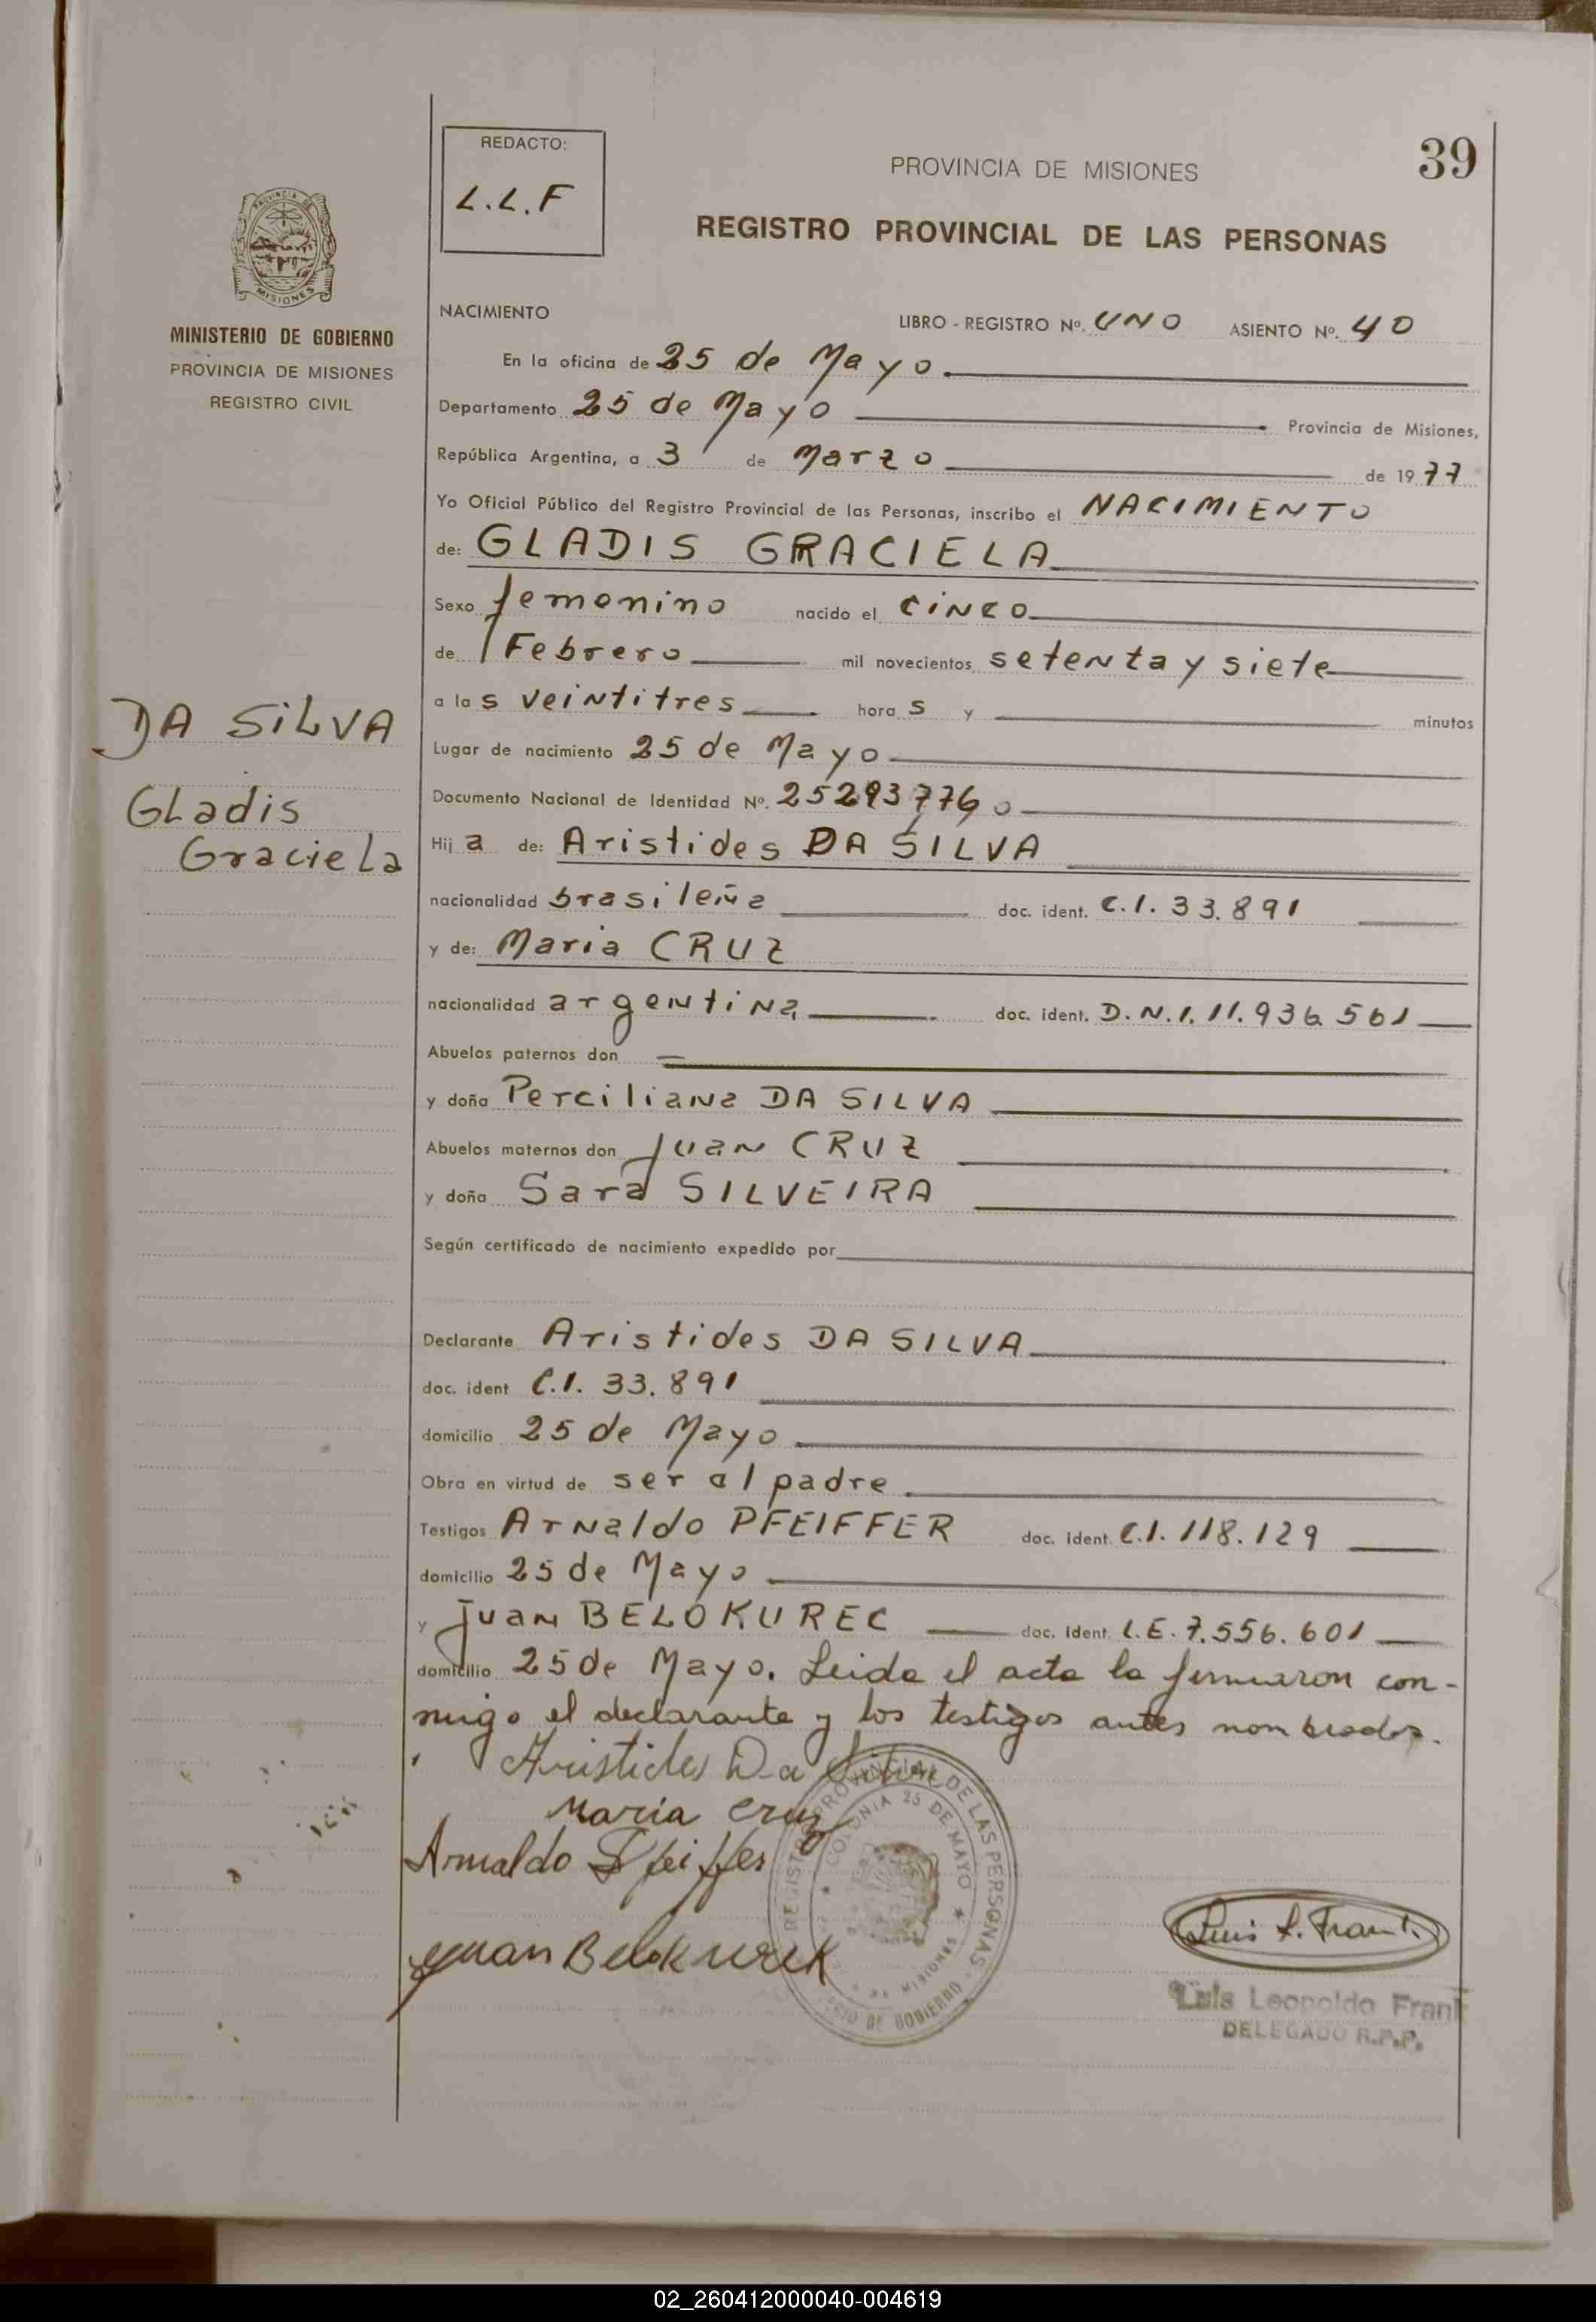 39
REDACTO:
L.L.F
PROVINCIA DE MISIONES
REGISTRO PROVINCIAL DE LAS PERSONAS
MISIONES
MINISTERIO DE GOBIERNO
PROVINCIA DE MISIONES
REGISTRO CIVIL
DA SiLVA
GLadis
GracieLa
NACIMIENTO
LIBRO - REGISTRO Nº. UNO ASIENTO Nº. 40
En la oficina de 25 de Mayo
Departamento 25 de Mayo Provincia de Misiones,
República Argentina, a 3 de Marzo de 1977
Yo Oficial Público del Registro Provincial de las Personas, inscribo el NACIMIENTO
de: GLADIS GRACIELA
Sexo femenino nacido el CiNCO
de Febrero mil novecientos setenta y siete
a las veintitres horas y minutos
Lugar de nacimiento 25 de Mayo
Documento Nacional de Identidad Nº. 25293776
Hija de: Aristides DA SILVA
nacionalidad brasileña doc. ident. C.I. 33.891
y de: Maria CRUZ
nacionalidad argentina doc. ident. D.N.I. 11.936.561
Abuelos paternos don
y doña Perciliana DA SILVA
Abuelos maternos don Juan CRUZ
y doña Sara SILVEIRA
Según certificado de nacimiento expedido por
Declarante Aristides DA SILVA
doc. ident C.I. 33.891
domicilio 25 de Mayo
Obra en virtud de ser el padre
Testigos Arnaldo PFEIFFER doc. ident. C.I. 118.129
domicilio 25 de Mayo
y Juan BELOKUREC doc. ident. L.E. 7.556.601
domicilio 25 de Mayo. Leida el acta la firmaron con-
migo el declarante y los testigos antes nombrados.
Aristides Da Silva
Maria Cruz
Arnaldo Pfeiffer
Juan Belokurek
REGISTRO PROVINCIAL DE LAS PERSONAS
COLONIA 25 DE MAYO
DE MISIONES
DE GOBIERNO
Luis L. Frank
Luis Leopoldo Frank
DELEGADO R.P.P.
02_260412000040-004619